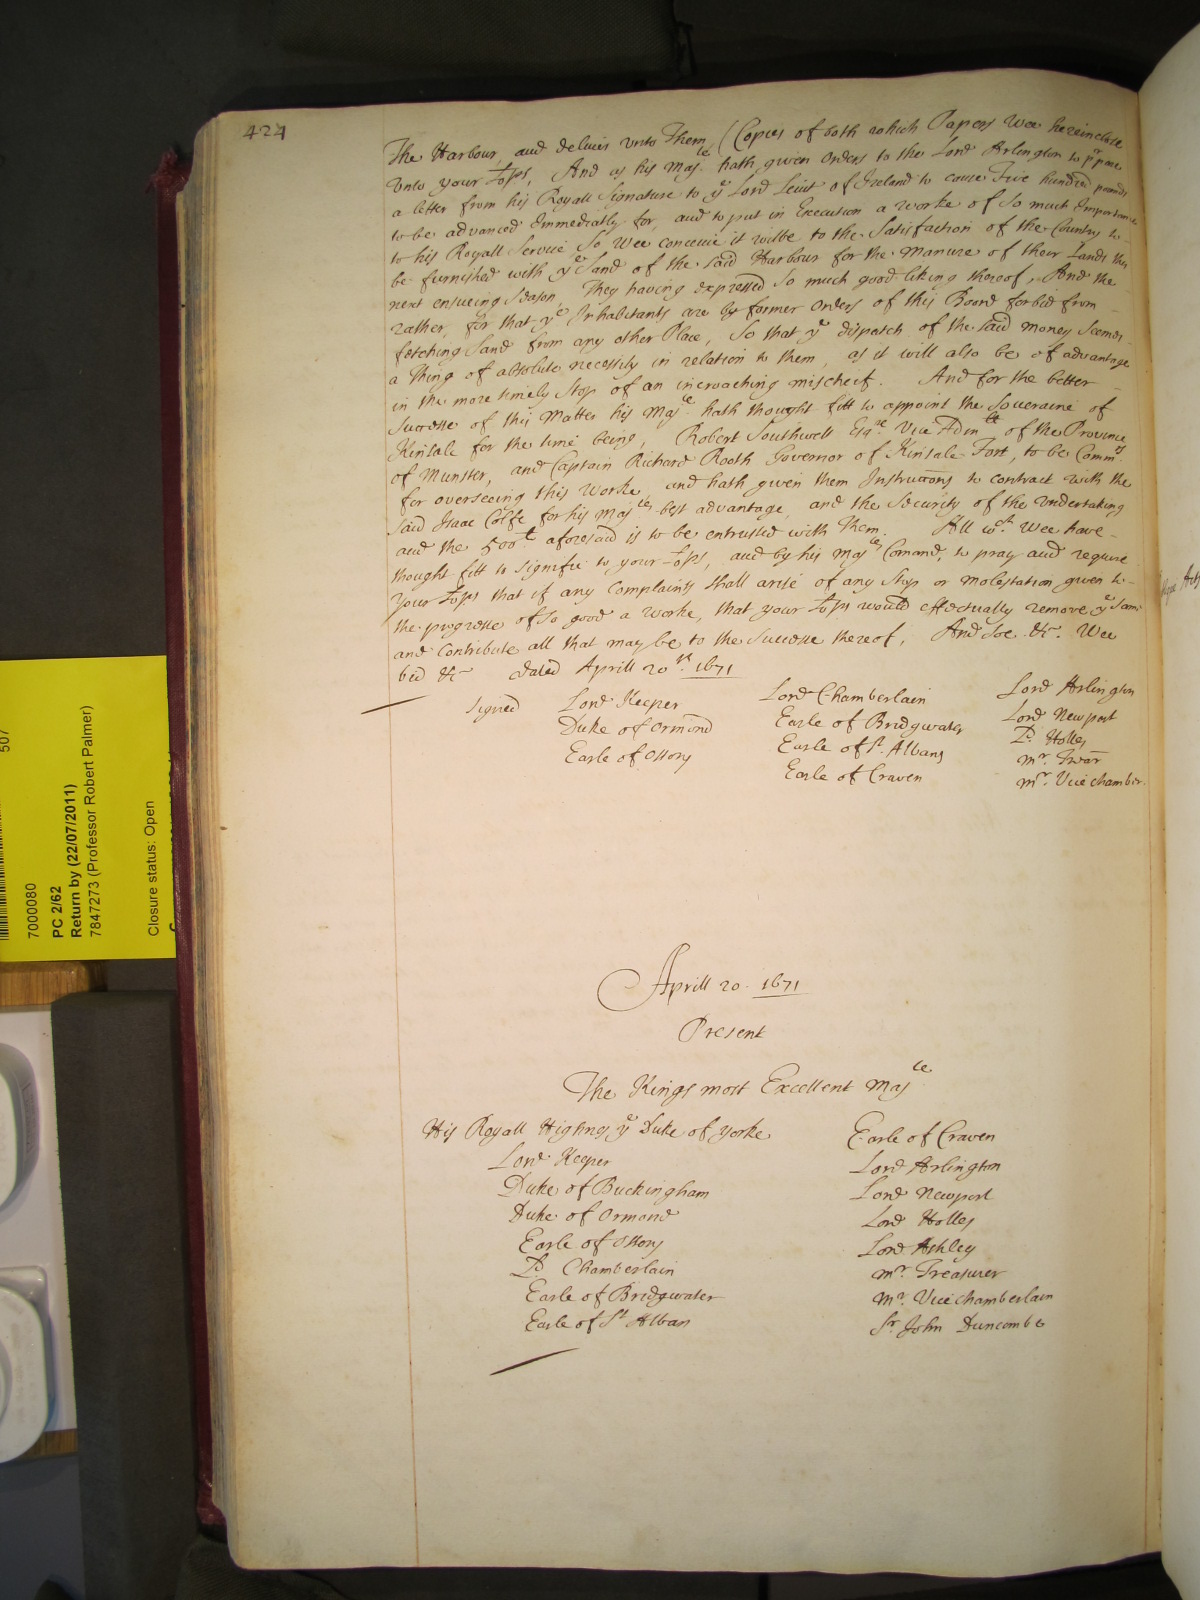 424
The Harbour, and deliver vnto Them (Copies of both which Papers Wee hereinclose
vnto your Lo:ps, And as his Maj:te hath given Orders to the Lord Arlington to p:rpare
a letter from his Royall Signature to y:e Lord Leiut of Ireland to cause Five hundred pounds
to be advanced Immediatly for, and to put in Execution a worke of so much Importance
to his Royall Service, So Wee conceive it wilbe to the Satisfaction of the Country to
be furnished with y:e Sand of the said Harbour for the Manure of their Lands this
next ensueing Season, They having expressed so much good liking thereof, And the
rather, for that y:e Inhabitants are by former Orders of this Board forbid from
fetching Sand from any other Place, So that y:e dispatch of the said money seemes
a thing of absolute necessity in relation to them, as it will also be of advantage
in the more timely Stop of an incroaching mischeif. And for the better
Successe of this Matter his Maj:te hath thought fitt to appoint the Soveraine of
Kinsale for the time being, Robert Southwell Esq:re Vice Adm:ll of the Province
of Munster, and Captain Richard Rooth Governor of Kinsale Fort, to be Comm:rs
for overseeing this Worke, and hath given them Instruccons to contract with the
said Isaac Colfe for his Maj:tes best advantage, and the Security of the Vndertaking
and the 500:l aforesaid is to be entrusted with Them. All w:ch Wee have
thought fitt to signifie to your Lo:ps, and by his Maj:tes Comand, to pray and require
your Lo:ps that if any Complaints shall arise of any Stop or molestation given to
the progresse of so good a worke, that your Lo:ps would effectually remove y:e Same
and contribute all that may be to the Successe thereof, And soe &c. Wee
bid &c dated Aprill 20:th 1671
Signed Lord Keeper Lord Chamberlain Lord Arlington
Duke of Ormond Earle of Bridgwater Lord Newport
Earle of Ossory Earle of S:t Albans L:d Holles
Earle of Craven M:r Trear
M:r Vice chamber
Aprill 20. 1671
Present
The Kings most Excellent Maj:te
His Royall Highnes y:e Duke of Yorke Earle of Craven
Lord Keeper Lord Arlington
Duke of Buckingham Lord Newport
Duke of Ormond Lord Holles
Earle of Ossory Lord Ashley
L:d Chamberlain M:r Treasurer
Earle of Bridgwater M:r Vice chamberlain
Earle of S:t Alban S:r John Duncombe
507
7000080
PC 2/62
Return by (22/07/2011)
7847273 (Professor Robert Palmer)
Closure status: Open